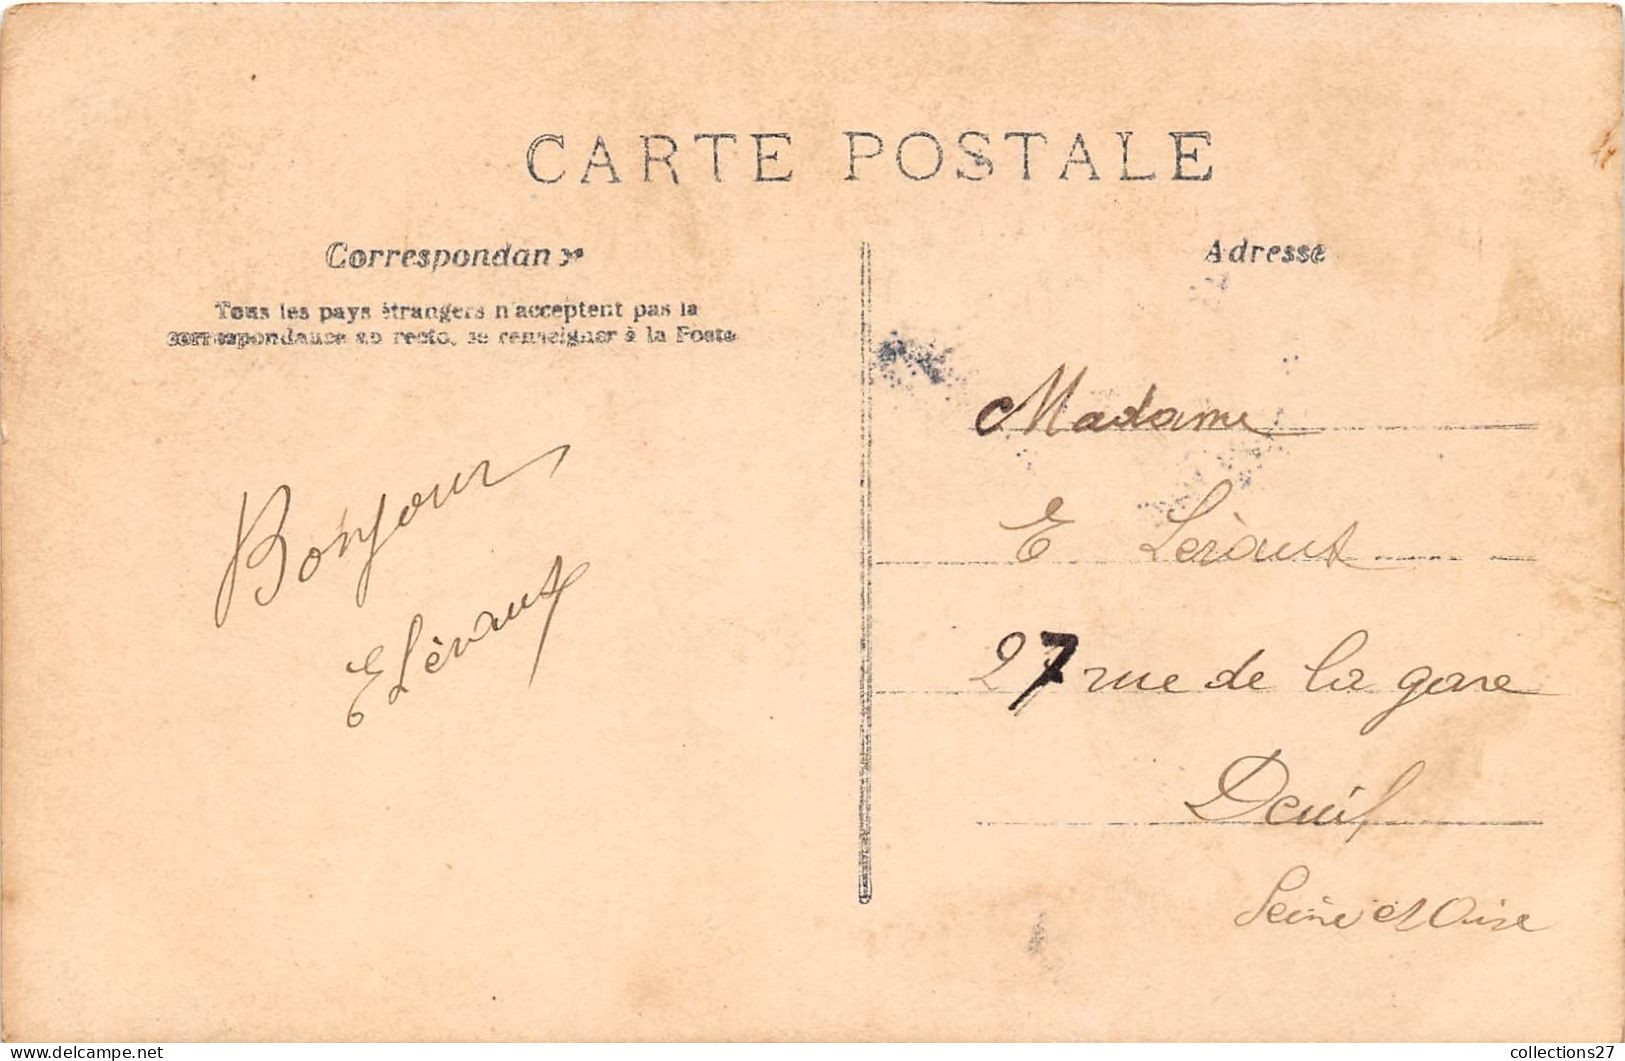 CARTE POSTALE
Correspondance
Tous les pays étrangers n'acceptent pas la
correspondance au recto, se renseigner à la Poste
Bonjour
E Lérault
Adresse
Madame
E Lérault
27 rue de la gare
Deuil
Seine et Oise
collections27